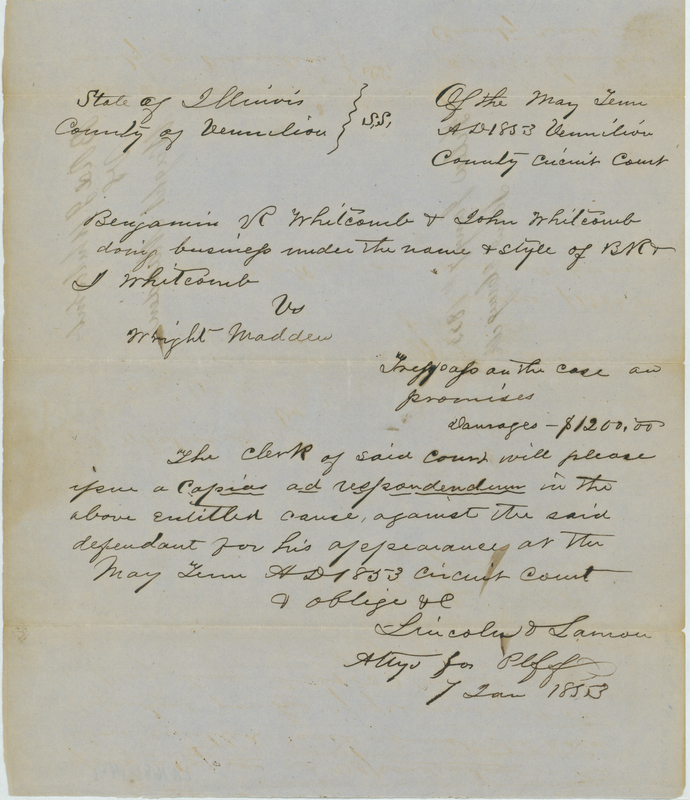 State of Illinois } S.S.
County of Vermilion
Of the May Term
AD 1853 Vermilion
County Circuit Court
Benjamin R Whitcomb & John Whitcomb
doing business under the name & style of BR &
J Whitcomb
Vs
Wright Madden
Trespass on the case on
promises
Damages – $1200.00
The Clerk of said court will please
issue a Capias ad respondendum in the
above entitled cause, against the said
defendant for his appearance at the
May Term AD 1853 Circuit Court
& oblige &C
Lincoln & Lamon
Attys for Plff
7 Jan 1853